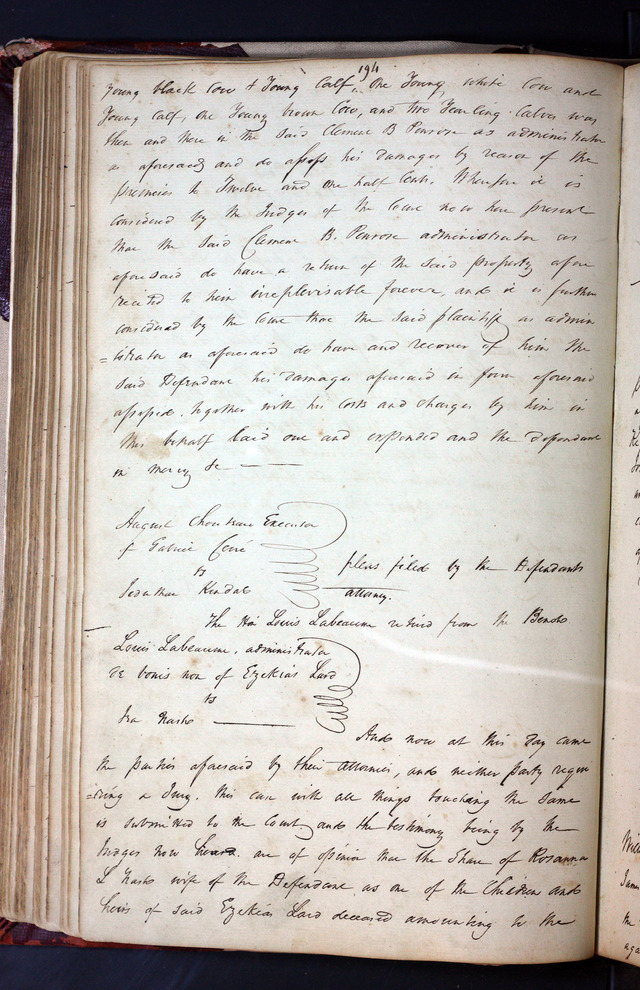 194
young black Cow & Young Calf, One Young, white Cow and
Young calf, one Young brown Cow, and two Yearling Calves was
then and there in the said Clement B Penrose as administrator
as aforesaid and do assess his damages by reason of the
premises to Twelve and one half Cents. Wherefore it is
Considered by the Judges of the Court now here present
that the said Clement B. Penrose administrator as
aforesaid do have a return of the said property afore
recited to him irreplevisable forever, and it is further
considered by the Court that the said plaintiff as admin
=istrator as aforesaid do have and recover of him the
said Defendant his damages aforesaid in form aforesaid
assessed, together with his costs and charges by him in
this behalf laid out and expended and the defendant
in mercy &c
August Chouteau Executor
of Gabriel Cerré
vs
Kendal
pleas filed by the Defendants
attorney.
The Hon Louis Labeaume retired from the Bench
Louis Labeaume, administrator
de bonis non of Ezekias Lard
vs
Ira Nash
And now at this day came
the parties aforesaid by their attornies, and neither party requi
=ring a Jury. this case with all things touching the same
is submitted to the Court, and the testimony being by the
Judges now heard are of opinion that the Share of Rosanna
L Nash wife of the Defendant as one of the Children and
heirs of said Ezekias Lard deceased amounting to the